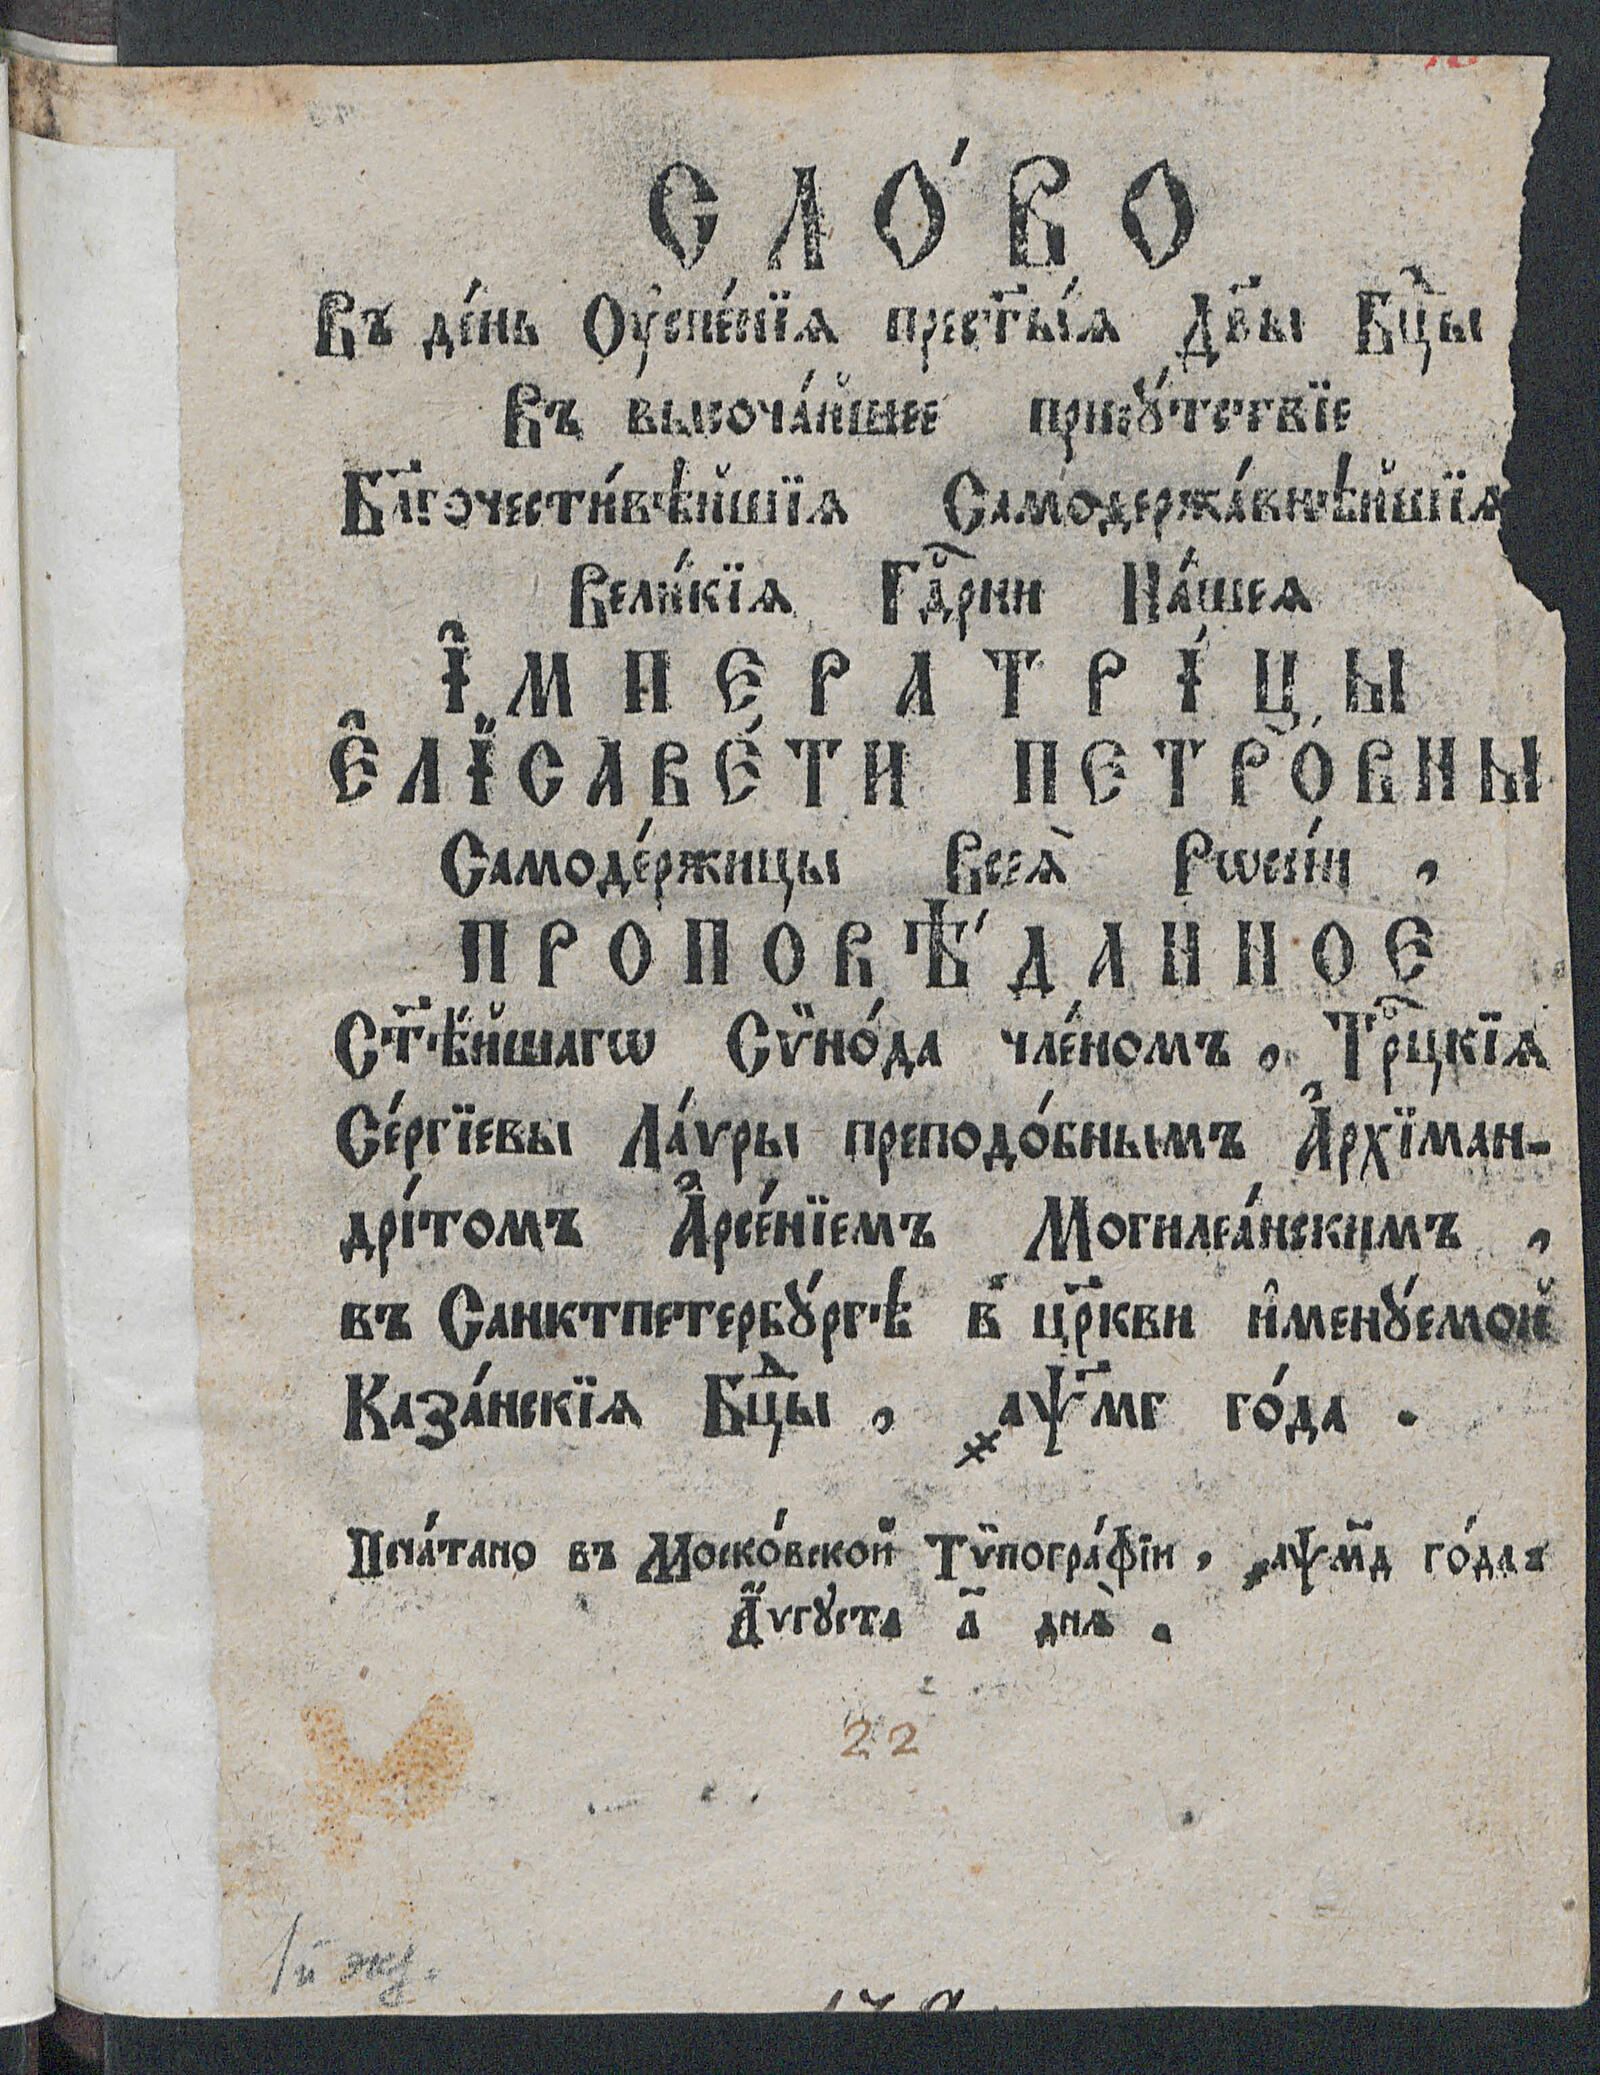 СЛО́ВО
Въ де́нь Оу҆спе́нїѧ прест҃ы́ѧ Дв҃ы Бц҃ы
Въ высоча́йшее прису́тствїе
Бл҃гочести́вѣйшїѧ Самодержа́внѣйшїѧ
Вели́кїѧ Гдⷭ҇рни На́шеѧ
І҆МПЕРАТРІ́ЦЫ
Е҆ЛЇСАВЕ́ТИ ПЕТРО́ВНЫ
Самоде́ржицы Всеѧ̀ Рѡсі́и ,
ПРОПОВѢ́ДАННОЕ
Ст҃ѣ́йшагѡ Сѷно́да чле́номъ , Трⷪ҇цкїѧ
Се́ргїевы Ла́ѵры преподо́бнымъ А҆рхїман-
дрі́томъ А҆рсе́нїемъ Могилеа́нскимъ ,
въ Санктпетербꙋ́ргѣ в̾ цр҃кви и҆менꙋ́емой
Каза́нскїѧ Бцⷣы , ҂аѱ҃мг го́да .
Печа́тано въ Моско́вской Тѷпогра́фїи , ҂аѱм҃д го́да
А҆́ѵгꙋста а҃ днѧ̀ .
22
1й экз.